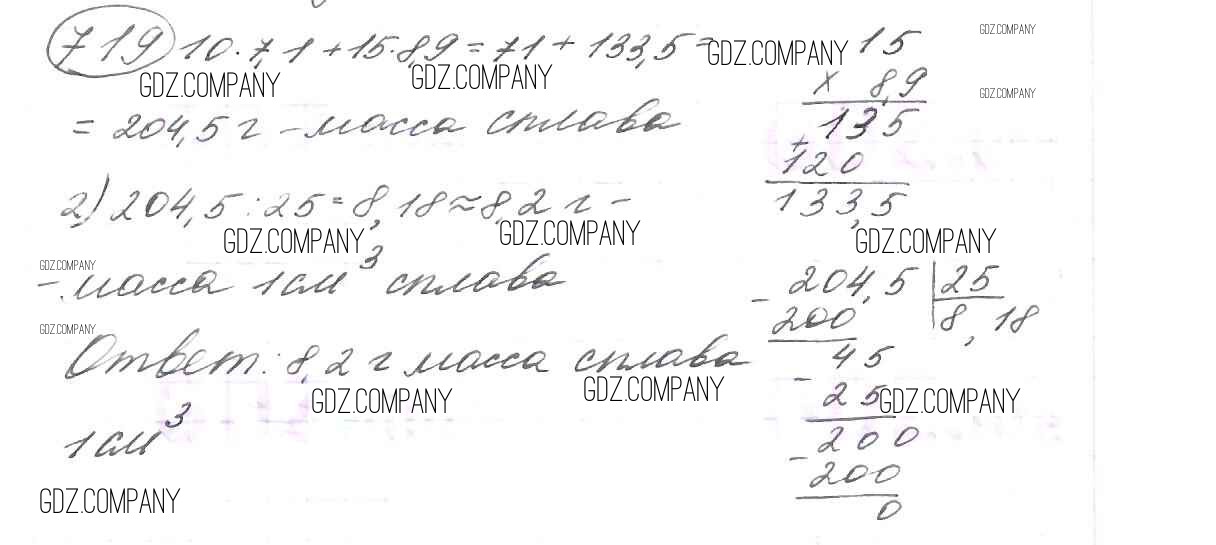 719 10·7,1+15·8,9=71+133,5=
GDZ.COMPANY GDZ.COMPANY GDZ.COMPANY GDZ.COMPANY
= 204,5 г – масса сплава
2) 204,5:25=8,18≈8,2 г –
GDZ.COMPANY GDZ.COMPANY
GDZ.COMPANY
– масса 1 см³ сплава
GDZ.COMPANY
Ответ: 8,2 г масса сплава
GDZ.COMPANY GDZ.COMPANY
1 см³
GDZ.COMPANY
15
× 8,9
GDZ.COMPANY
135
+
120
133,5
GDZ.COMPANY
– 204,5 | 25
200 | 8,18
– 45
25 GDZ.COMPANY
– 200
200
0